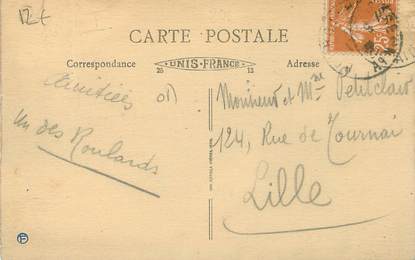 12€
CARTE POSTALE
Correspondance
UNIS-FRANCE
Adresse
25
Amitiés
un des Roulards
Monsieur et Mme Petitclair
124, Rue de Tournai
Lille